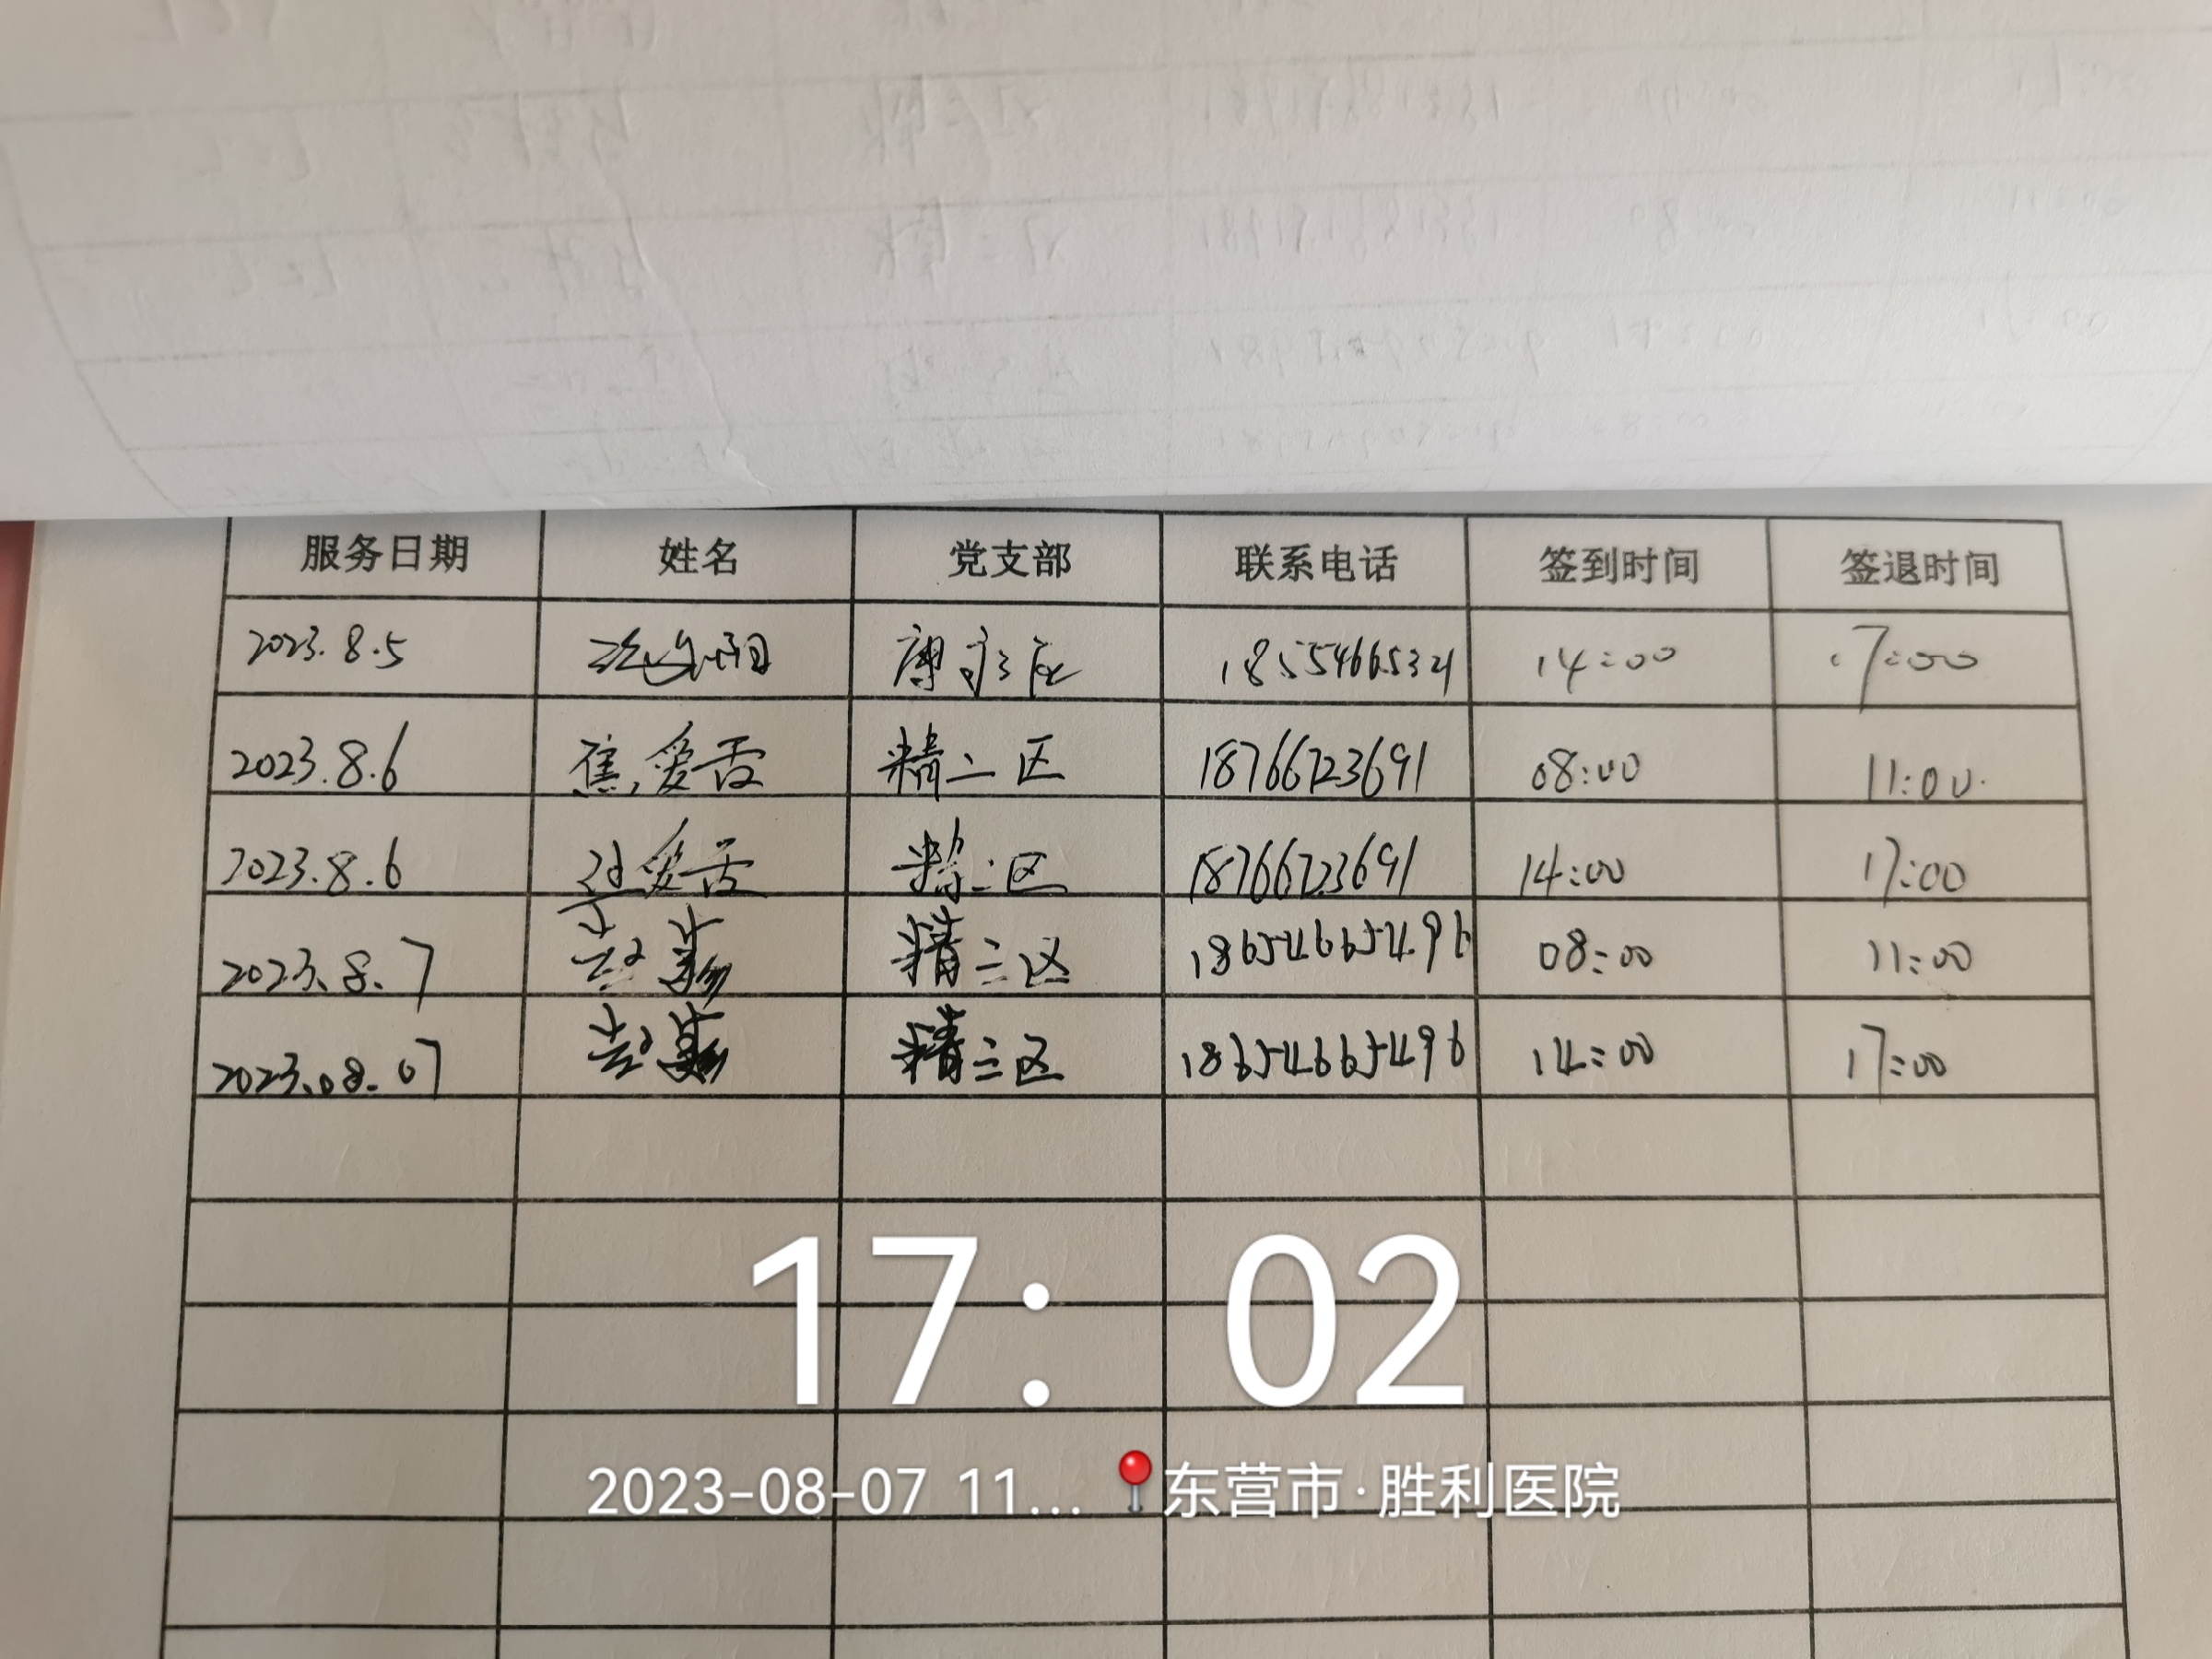 服务日期 姓名 党支部 联系电话 签到时间 签退时间
2023.8.5 18554665321 14:00 17:00
2023.8.6 焦爱霞 精二区 18766723691 08:00 11:00
2023.8.6 爱霞 精二区 18766723691 14:00 17:00
2023.8.7 精三区 18654665496 08:00 11:00
2023.08.07 精三区 18654665496 14:00 17:00
17: 02
2023-08-07 11... 东营市·胜利医院